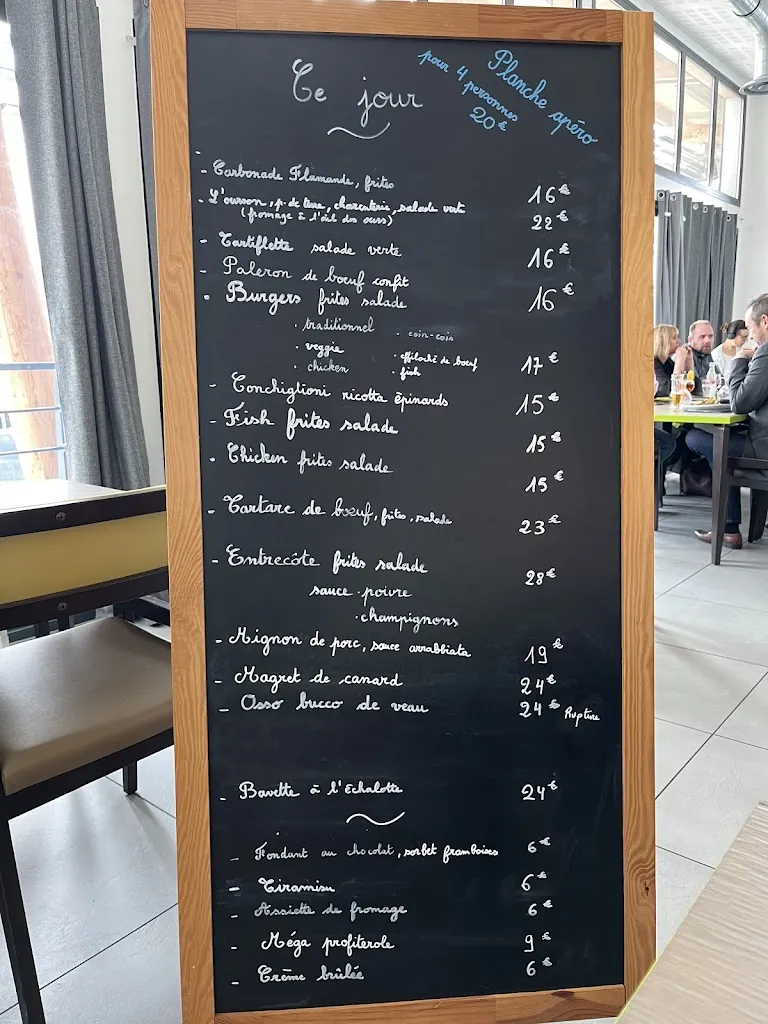 Ce jour
Planche apéro
pour 4 personnes
20€
- Carbonade Flamande, frites 16€
- L'ourson, p. de terre, charcuterie, salade verte 22€
(fromage à l'ail des ours)
- Tartiflette salade verte 16€
- Paleron de boeuf confit 16€
- Burgers frites salade
· traditionnel · coin-coin
· veggie · effiloché de boeuf 17€
· chicken · fish
- Conchiglioni ricotta épinards 15€
- Fish frites salade 15€
- Chicken frites salade 15€
- Tartare de boeuf, frites, salade 23€
- Entrecôte frites salade 28€
sauce · poivre
· champignons
- Mignon de porc, sauce arrabbiata 19€
- Magret de canard 24€
- Osso bucco de veau 24€ Rupture
- Bavette à l'échalotte 24€
- Fondant au chocolat, sorbet framboises 6€
- Tiramisu 6€
- Assiette de fromage 6€
- Méga profiterole 9€
- Crème brûlée 6€